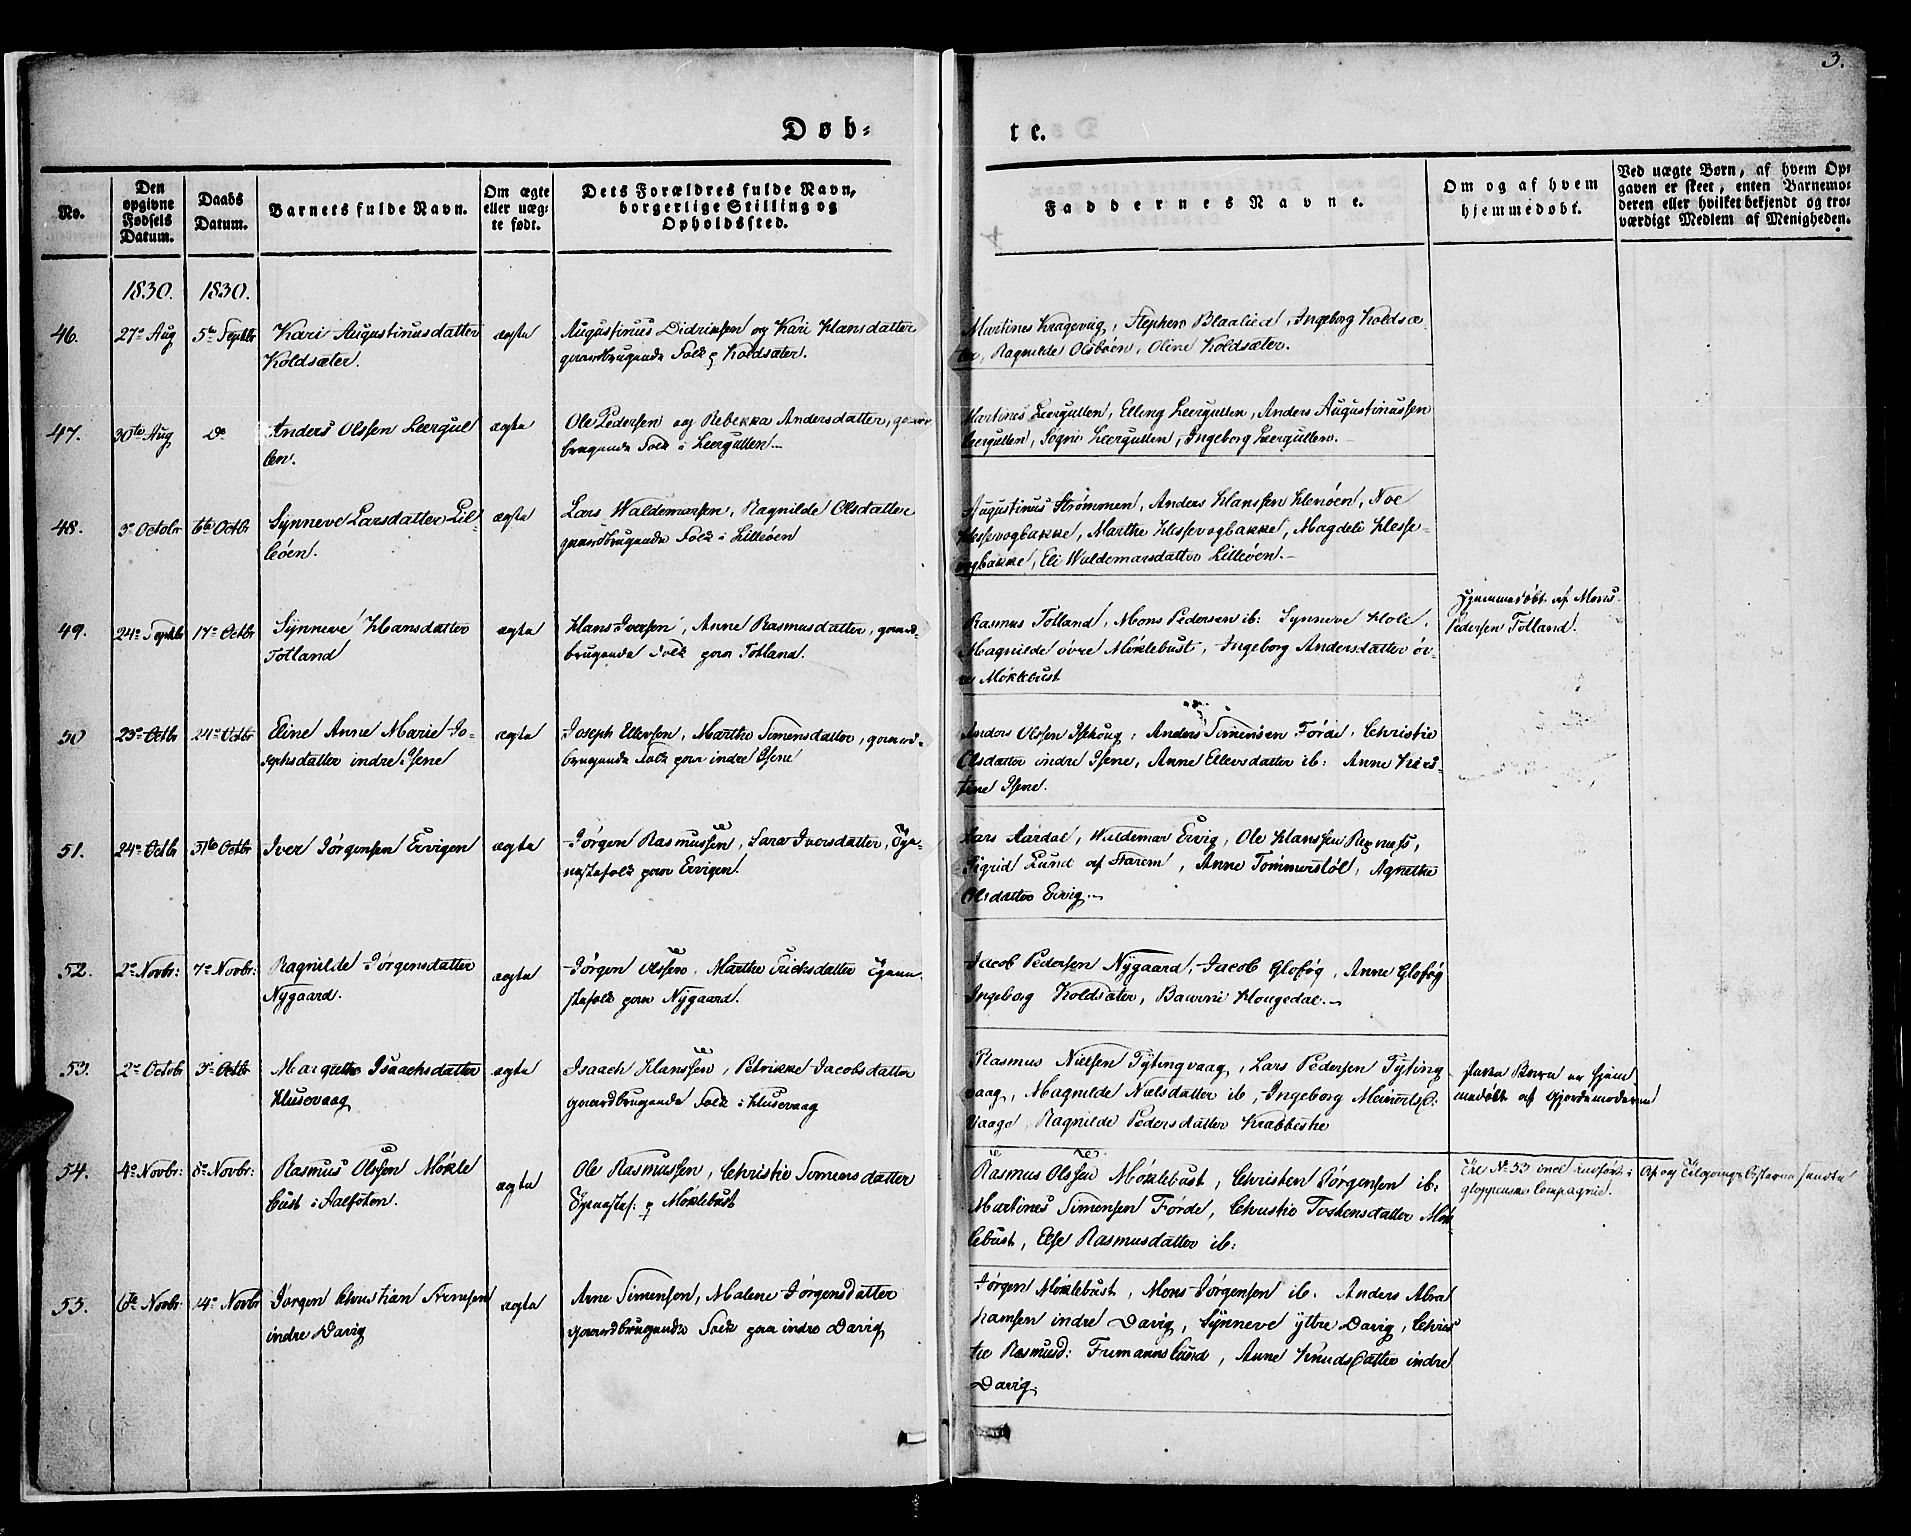 3.
Døb-
te.
No.
Den opgivne Fødsels Datum.
Daabs Datum.
Barnets fulde Navn.
Om ægte eller uæg-
te født.
Dets Forældres fulde Navn,
borgerlige Stilling og
Opholdssted.
Faddernes Navne.
Om og af hvem
hjemmedøbt.
Ved uægte Børn, af hvem Op-
gaven er skeet, enten Barnemo-
deren eller hvilket bekjendt og tro-
værdigt Medlem af Menigheden.
1830. 1830.
46. 27de Aug 5te Septbr Kari Augustinusdatter
Koldsæter.
ægte
Augustinus Didriksen og Kari Hansdatter
gaardbrugende Folk p Koldsæter.
Martines Kragevig, Stephen Blaalied, Ingeborg Koldsæ-
ter, Ragnilde Olsbøen, Oline Koldsæter.
47. 30te Aug do Anders Olssen Leergul
len.
ægte
Ole Pedersen og Rebekka Andersdatter, gaard
brugende Folk i Leergullen
Martines Leergullen, Elling Leergullen, Anders Augustinussen
Leergullen, Sogni Leergullen, Ingeborg Leergullen.
48. 3de Octobr 6te Octbr Synneve Larsdatter Lil
leøen.
ægte
Lars Waldemarsen, Ragnilde Olsdatter
gaardbrugende Folk i Lilleøen
Augustinus Strømmen, Anders Hanssen Henøen, Noe
Hessevogbakke, Marthe Hessevogbakke, Magdeli Hesse-
vogbakke, Eli Waldemarsdatter Lilleøen.
49. 24de Septbr 17de Octbr Synneve Hansdatter
Totland
ægte
Hans Iversen, Anne Rasmusdatter, gaard-
brugende Folk paa Totland.
Rasmus Totland, Mons Pedersen ib: Synneve Hole,
Magnilde øvre Møklebust, Ingeborg Andersdatter øv-
re Møklebust
Hjemmedøbt af Mons
Pedersen Totland.
50 23de Octbr 24de Octbr Eline Anne Marie Jo-
sephsdatter indre Isene
ægte
Joseph Ellersen, Marthe Simensdatter, gaard-
brugende Folk paa indre Isene
Anders Olssen Isehoug, Anders Simensen Førde, Christie
Olsdatter indre Isene, Anne Ellersdatter ib: Anne Kirs-
tine Isene.
51. 24de Octbr 31te Octbr Iver Jørgensen Ervigen
ægte
Jørgen Rasmussen, Sara Iversdatter, Tjene-
stefolk paa Ervigen.
Lars Aardal, Waldemar Ervig, Ole Hanssen Rugnæss,
Sigrid Lund af Starem, Anne Tommerstøl, Agnethe
Olsdatter Ervig.
52. 2de Novbr: 7de Novbr: Ragnilde Jørgensdatter
Nygaard.
ægte
Jørgen Olssen, Marthe Ericksdatter Tjene-
stefolk paa Nygaard.
Jacob Pedersen Nygaard, Jacob Gloføg, Anne Gloføg
Ingeborg Koldsæter, Baurni Hougedal.
53. 2de Octobr 3de Octbr Margrethe Isaachsdatter
Husevaag
ægte
Isaach Hanssen, Petrikke Jacobsdatter
gaardbrugende Folk i Husevaag
Rasmus Nielsen Tytingvaag, Lars Pedersen Tyting
vaag, Magnilde Nielsdatter ib, Ingeborg Meinertsd:
Vaage, Ragnilde Pedersdatter Krabbeshe
dette Barn er hjem-
medøbt af Gjordemoderen
54. 4de Novbr: 8de Novbr: Rasmus Olssen Møkle
bust i Aalfoten.
ægte
Ole Rasmussen, Christie Simensdatter
Tjenestef: p Møklebust
Rasmus Olssen Møklebust, Christen Jørgensen ib:
Martines Simensen Førde, Christie Torkensdatter Møk
lebust, Else Rasmusdatter ib:
Til No 53 incl indført i
gloppenske Compagnie.
Af og Tilgangs Listerne sendte
55. 6te Novbr: 14de Novbr Jørgen Christian Arnesen
indre Davig
ægte
Arne Simensen, Malene Jørgensdatter
gaardbrugende Folk paa indre Davig
Jørgen Møklebust, Mons Jørgensen ib. Anders Abra
hamsen indre Davig, Synneve ytbre Davig, Chris
tie Rasmusd: Frimannslund, Anne Knudsdatter indre
Davig.